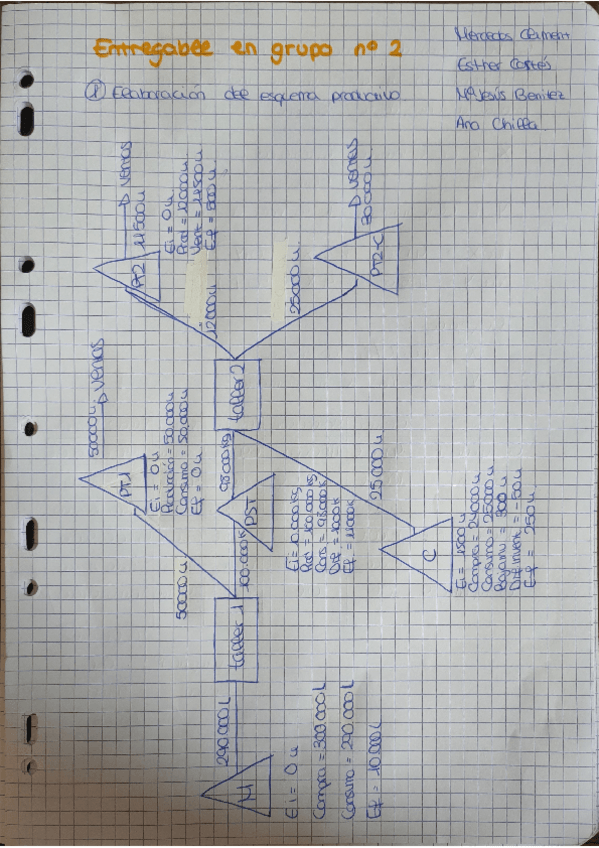 Entregable en grupo nº 2
Mercedes Climent
Esther Cortés
Mª Jesús Benitez
Ana Chiffa
① Elaboración del esquema productivo
M
290.000 L
Ei = 0 u
Compra = 300.000 L
Consumo = 290.000 L
Ef = 10.000 L
taller 1
50000 u
PT1
50000 u
D ventas
Ei = 0 u
Producción = 50.000 u
Consumo = 50.000 u
Ef = 0 u
100.000 K
PST
98000 kg
Ei = 10.000 kg
Prod = 100.000 kg
Cons = 98.000 K
Dif = 1000 K
Ef = 11000 K
C
25.000 u
Ei = 1500 u
Compra = 24000 u
Consumo = 25000 u
Dif invent = -50 u
Ef = 250 u
taller 2
12000 u
PT2
11500 u
D ventas
Ei = 0 u
Prod = 12.000 u
Vent = 11500 u
Ef = 500 u
25000 u
PT2-C
20000 u
D ventas